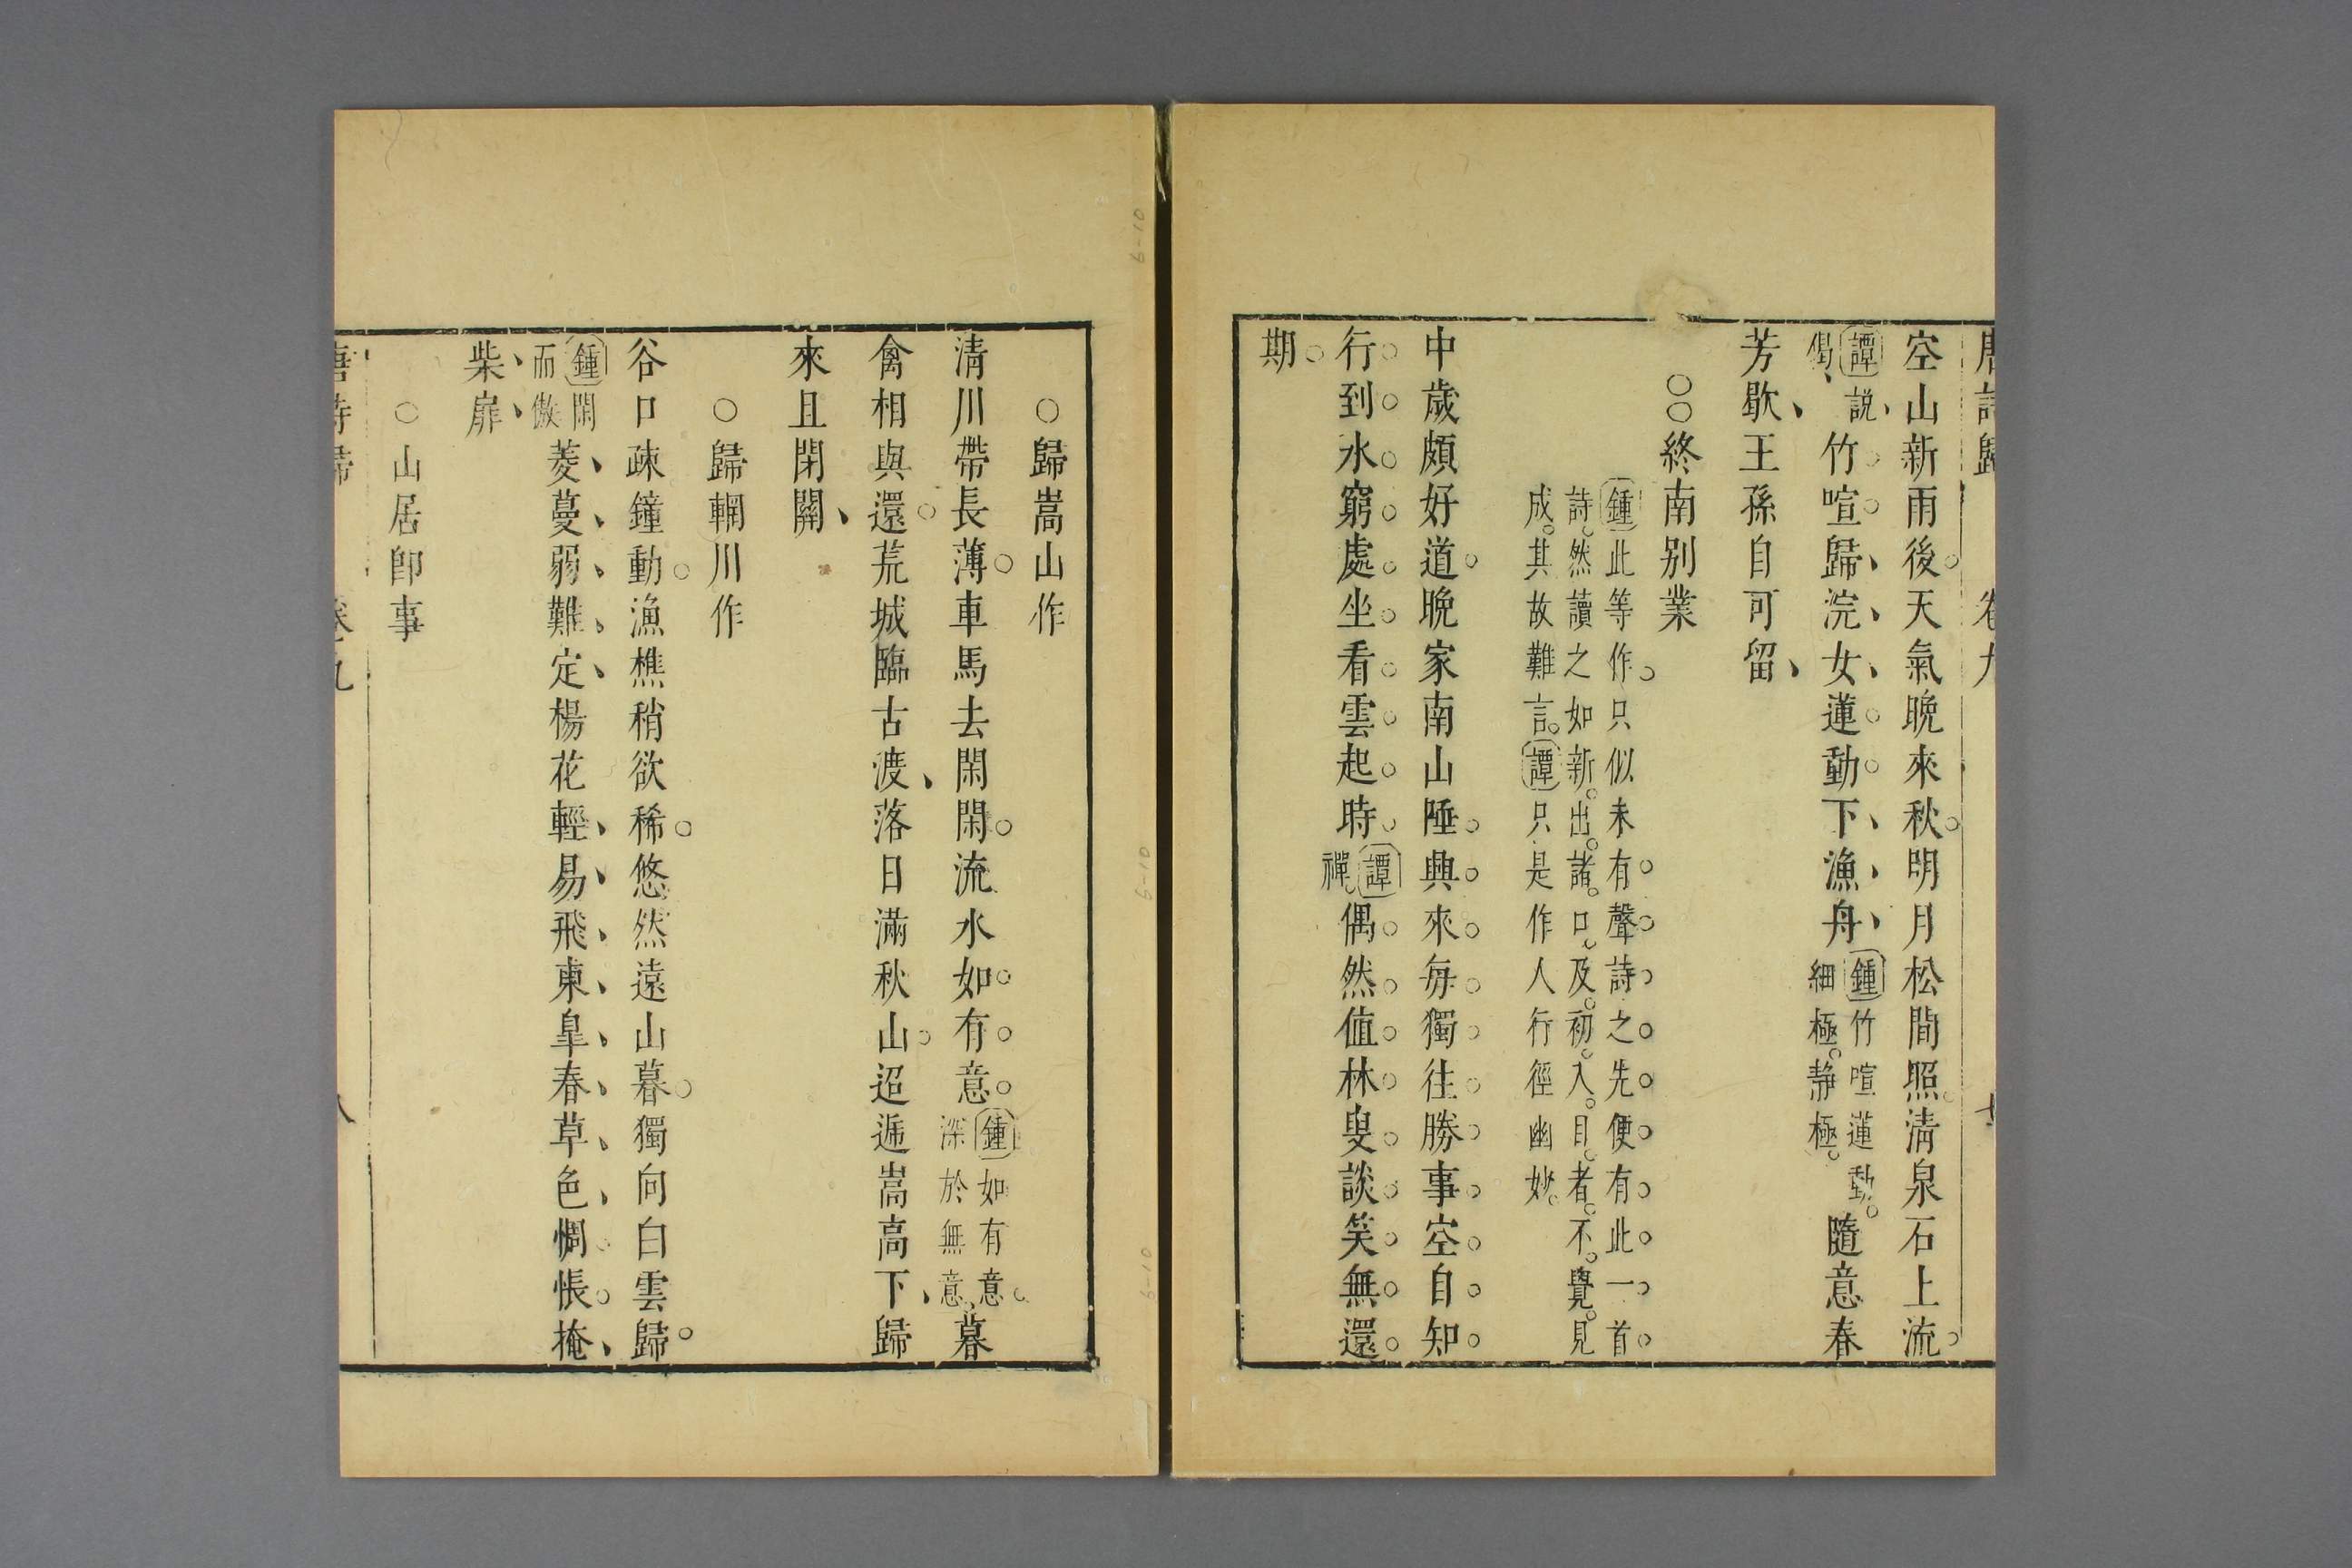 唐詩歸 卷九 七
空山新雨後天氣晚來秋明月松間照清泉石上流
譚說偈竹喧歸浣女蓮動下漁舟鍾竹喧蓮動細極靜極隨意春
芳歇王孫自可留
○○終南別業
鍾此等作只似未有聲詩之先便有此一首
詩然讀之如新出諸口及初入目者不覺見
成其故難言譚只是作人行徑幽妙
中歲頗好道晚家南山陲興來每獨往勝事空自知
行到水窮處坐看雲起時譚禪偶然值林叟談笑無還
期
○歸嵩山作
清川帶長薄車馬去閑閑流水如有意鍾如有意深於無意暮
禽相與還荒城臨古渡落日滿秋山迢遞嵩高下歸
來且閉關
○歸輞川作
谷口疎鐘動漁樵稍欲稀悠然遠山暮獨向白雲歸
鍾閑而傲菱蔓弱難定楊花輕易飛東皐春草色惆悵掩
柴扉
○山居卽事
唐詩歸 卷之九 八